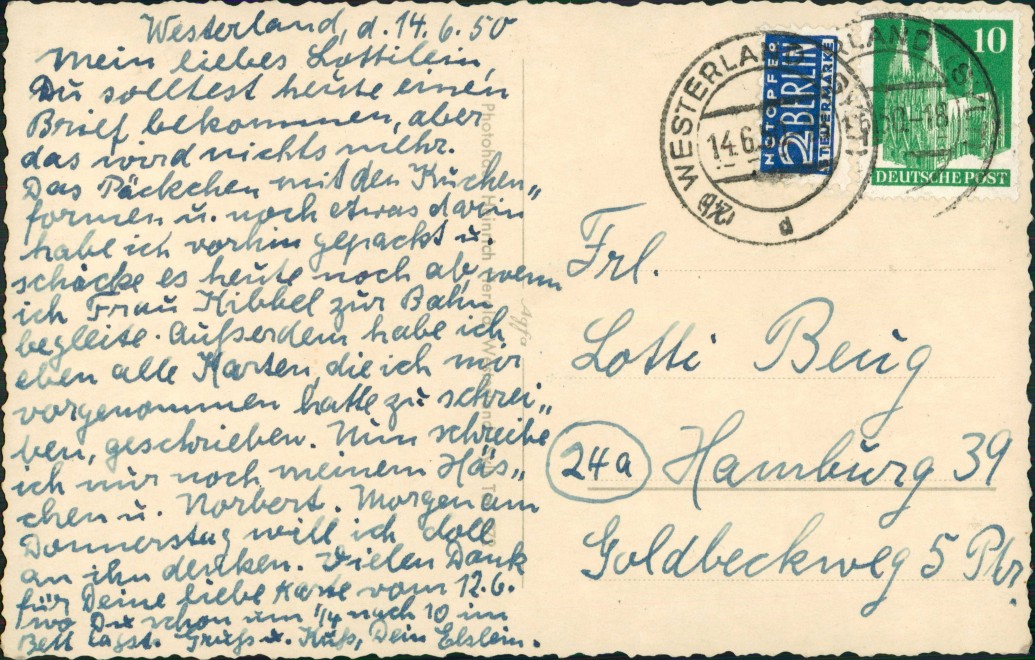 Westerland, d. 14.6.50
Mein liebes Lottilein,
Du solltest heute einen
Brief bekommen, aber
das wird nichts mehr.
Das Päckchen mit den Kuchen„
formen u. noch etwas darin
habe ich vorhin gepackt u.
schicke es heute noch ab, wenn
ich Frau Kibbel zur Bahn
begleite. Außerdem habe ich
eben alle Karten, die ich mir
vorgenommen hatte zu schrei„
ben, geschrieben. Nun schreibe
ich nur noch meinem Häs„
chen u. Norbert. Morgen am
Donnerstag will ich doll
an ihn denken. Vielen Dank
für Deine liebe Karte vom 12.6.
wo Du schon um 1/4 nach 10 im
Bett lagst. Gruß u. Kuß, Dein Elslein.
Photoho Heinrich
Agfa
WESTERLAND
14.6.
(24b)
a
NOTOPFER
2 BERLIN
STEUERMARKE
10
DEUTSCHE POST
-18
Frl.
Lotti Beug
24a Hamburg 39
Goldbeckweg 5 Ptr.